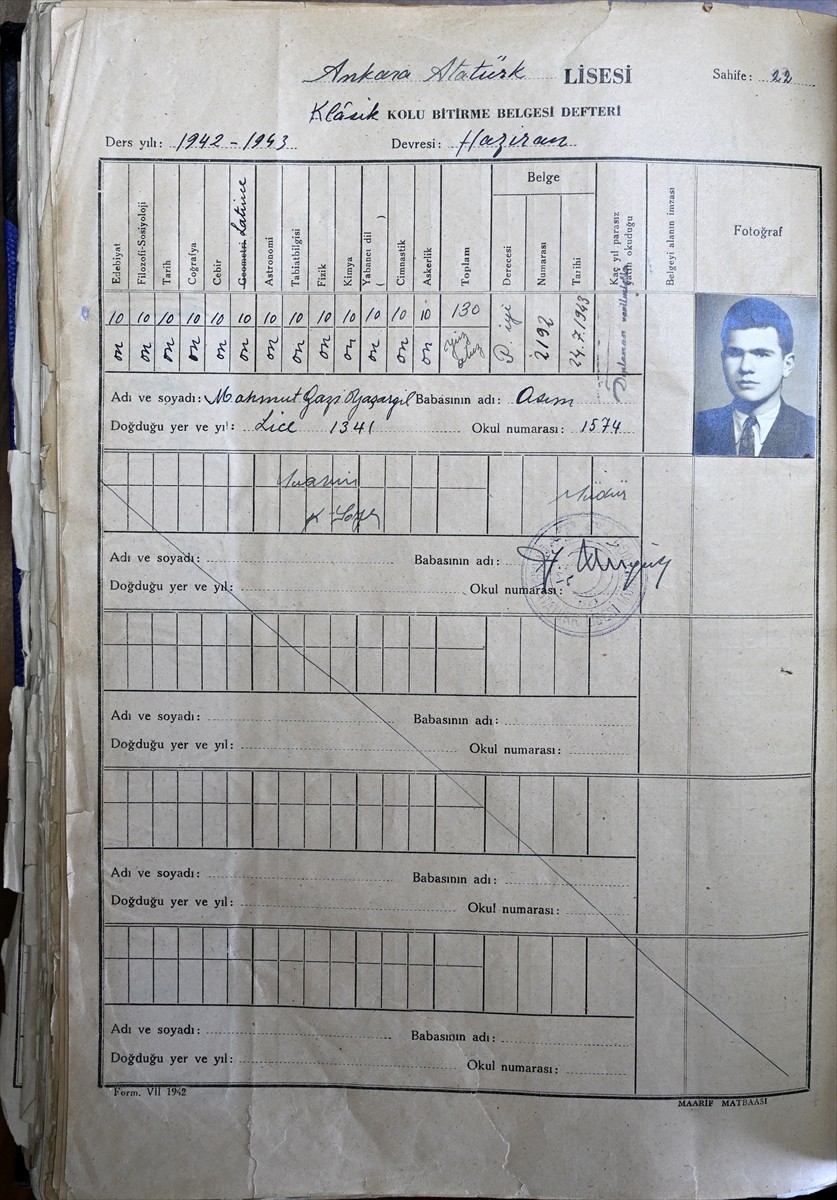 Ankara Atatürk LİSESİ Sahife: 22
Klâsik KOLU BİTİRME BELGESİ DEFTERİ
Ders yılı: 1942-1943 Devresi: Haziran
Edebiyat Filozofi-Sosiyoloji Tarih Coğrafya Cebir Geometri Latince Astronomi Tabiatbilgisi Fizik Kimya Yabancı dil ( ) Cimnastik Askerlik Toplam Belge Derecesi Numarası Tarihi Kaç yıl parasız yatılı okuduğu Belgeyi alanın imzası Fotoğraf
10 10 10 10 10 10 10 10 10 10 10 10 10 130 P. iyi 2192 24.7.1943
on on on on on on on on on on on on on yüz otuz
Adı ve soyadı: Mahmut Gazi Yaşargil Babasının adı: Asım
Doğduğu yer ve yıl: Lice 1341 Okul numarası: 1574
Müdür
Adı ve soyadı: Babasının adı:
Doğduğu yer ve yıl: Okul numarası:
Adı ve soyadı: Babasının adı:
Doğduğu yer ve yıl: Okul numarası:
Adı ve soyadı: Babasının adı:
Doğduğu yer ve yıl: Okul numarası:
Adı ve soyadı: Babasının adı:
Doğduğu yer ve yıl: Okul numarası:
Form. VII 1942 MAARİF MATBAASI